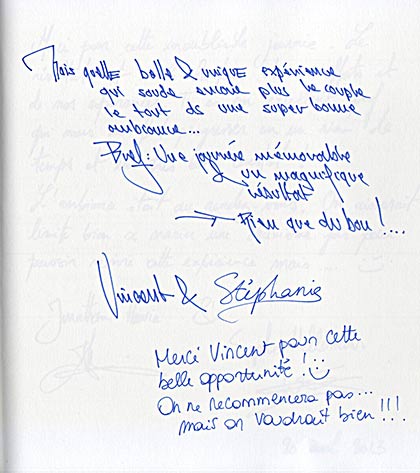 Mais quelle belle & unique expérience
qui soude encore plus le couple
le tout ds une super bonne
ambiance...
Bref: Une journée mémorable
& un magnifique
résultat
→ Rien que du bon !...
Vincent & Stéphanie
Merci Vincent pour cette
belle opportunité !
On ne recommencera pas...
mais on voudrait bien !!!